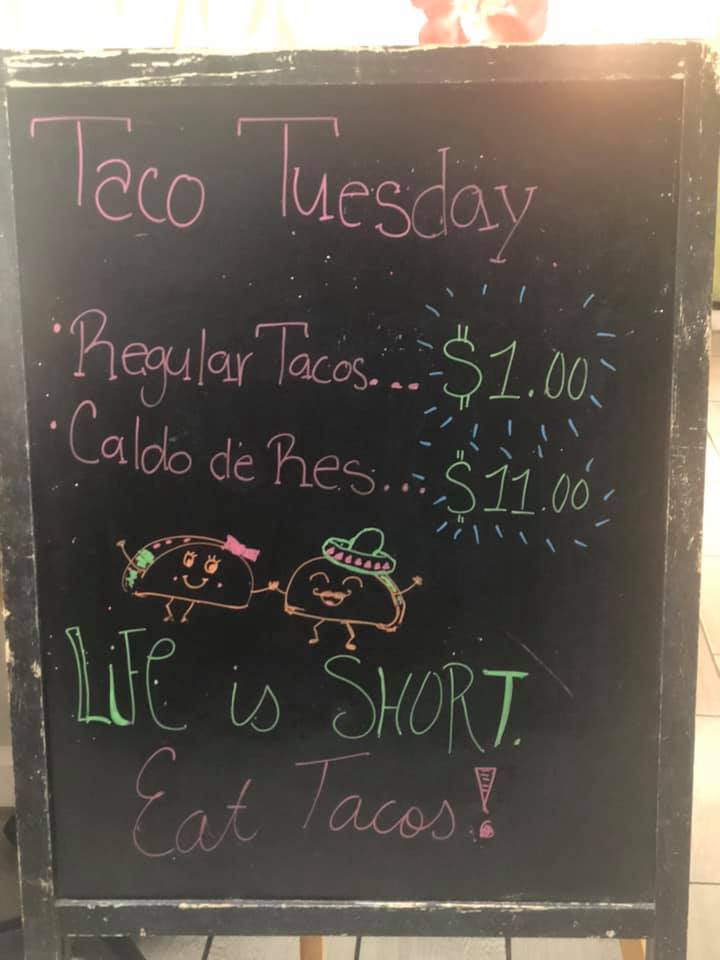 Taco Tuesday
· Regular Tacos.... $1.00
· Caldo de Res... $11.00
LiFe is SHORT.
Eat Tacos!